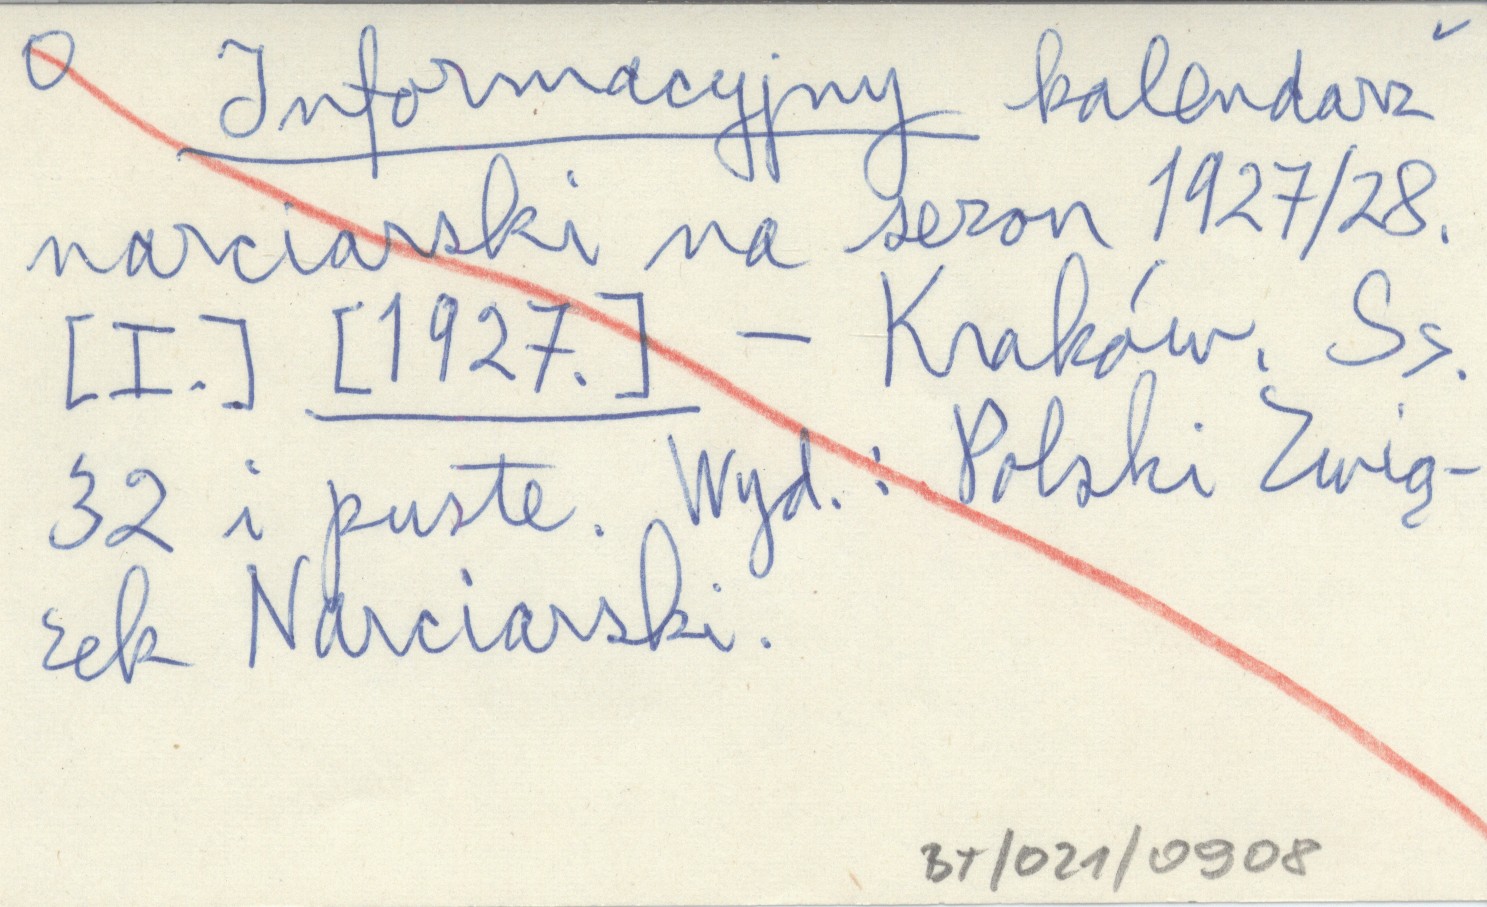 O Informacyjny kalendarz
narciarski na sezon 1927/28.
[I.] [1927.] — Kraków. Ss.
32 i puste. Wyd.: Polski Zwią-
zek Narciarski.
BT/021/0908